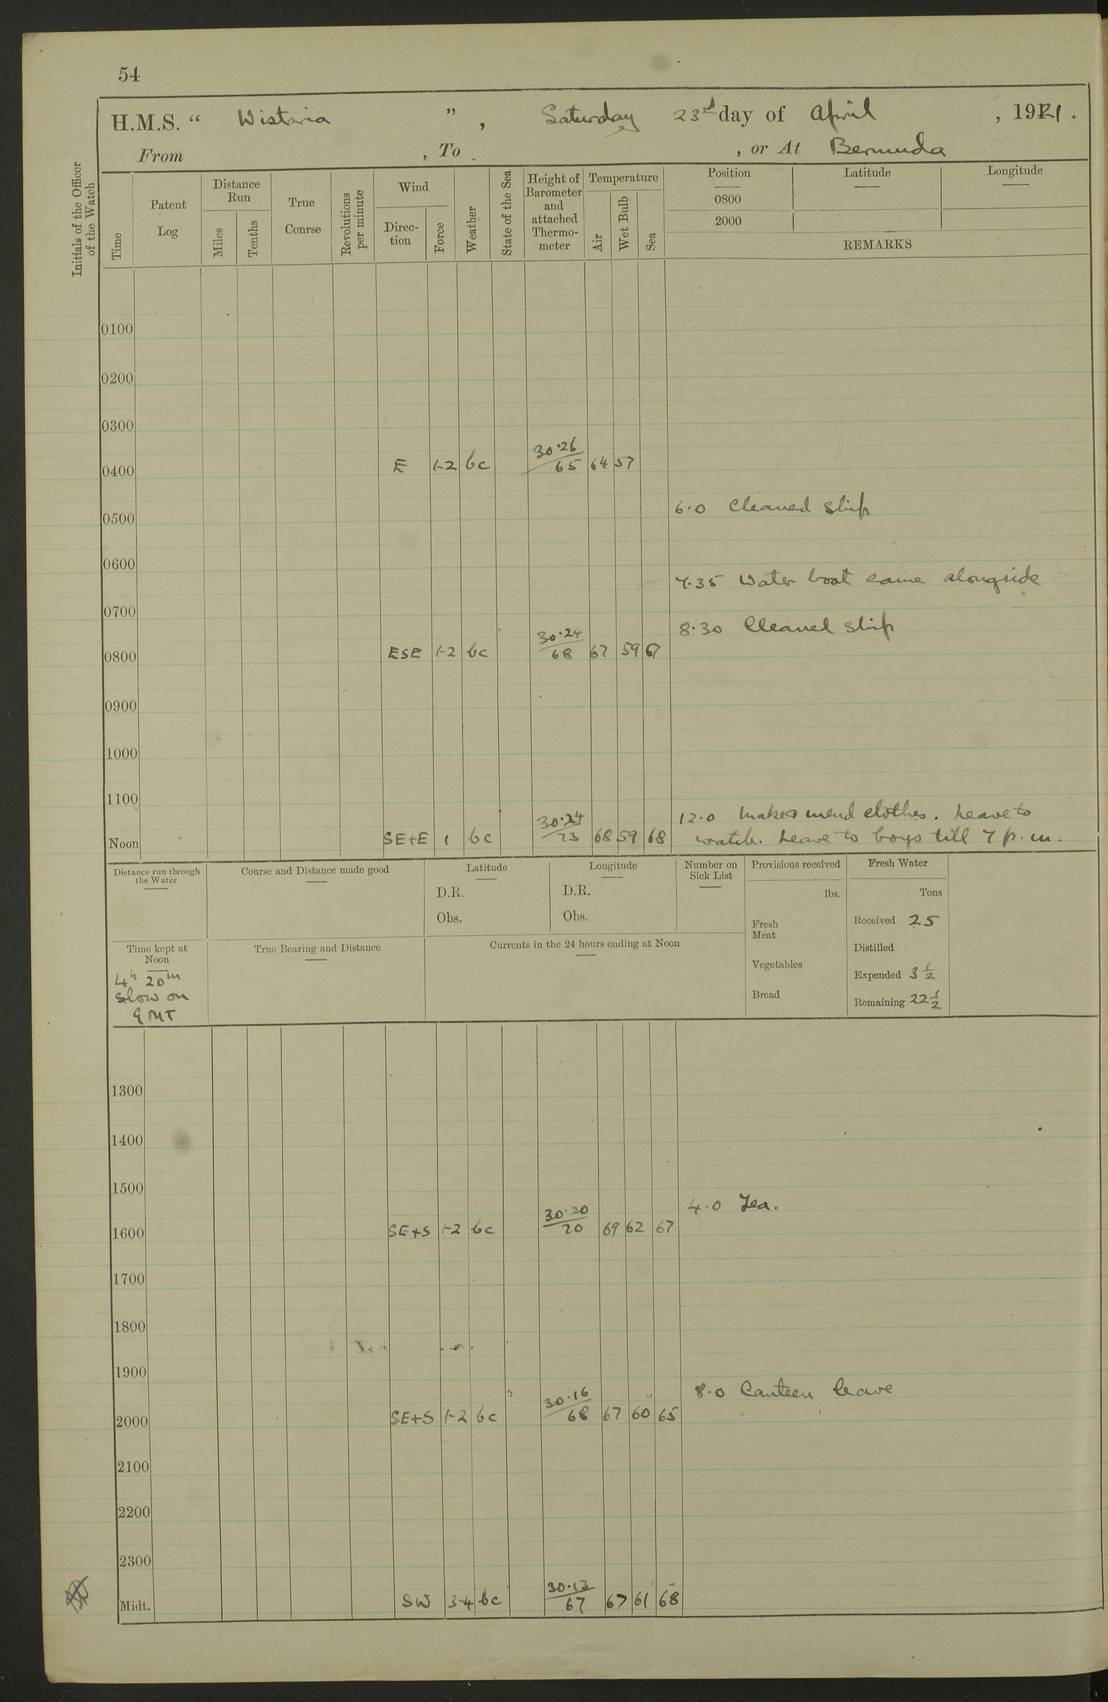 54
H.M.S. “ Wistaria ” , Saturday 23rd day of April , 1921 .
From , To , or At Bermuda
Initials of the Officer of the Watch
Time
Patent Log
Distance Run
Miles
Tenths
True Conrse
Revolutions per minute
Wind
Direc-tion
Force
Weather
State of the Sea
Height of Barometer and attached Thermo-meter
Temperature
Air
Wet Bulb
Sea
Position Latitude Longitude
0800
2000
REMARKS
0100
0200
0300
30·26
0400 E 1-2 bc 65 64 57
6·0 Cleaned ship
0500
0600
7·35 Water boat came alongside
0700
8·30 Cleaned ship
30·24
0800 ESE 1-2 bc 68 67 59 67
0900
1000
1100
30·24 12·0 make & mend clothes. Leave to
Noon SE+E 1 bc 73 68 59 68 watch. Leave to boys till 7 p.m.
Distance run through the Water
Course and Distance made good
Latitude
D.R.
Obs.
Longitude
D.R.
Obs.
Number on Sick List
Provisions received
lbs.
Fresh Meat
Vegetables
Bread
Fresh Water
Tons
Received 25
Distilled
Expended 3 1/2
Remaining 22 1/2
Time kept at Noon
4h 20m
slow on
GMT
True Bearing and Distance
Currents in the 24 hours ending at Noon
1300
1400
1500
4·0 Tea.
30·20
1600 SE+S 1-2 bc 70 69 62 67
1700
1800
1900
8·0 Canteen leave
30·16
2000 SE+S 1-2 bc 68 67 60 65
2100
2200
2300
30·13
Midt. SW 3-4 bc 67 67 61 68